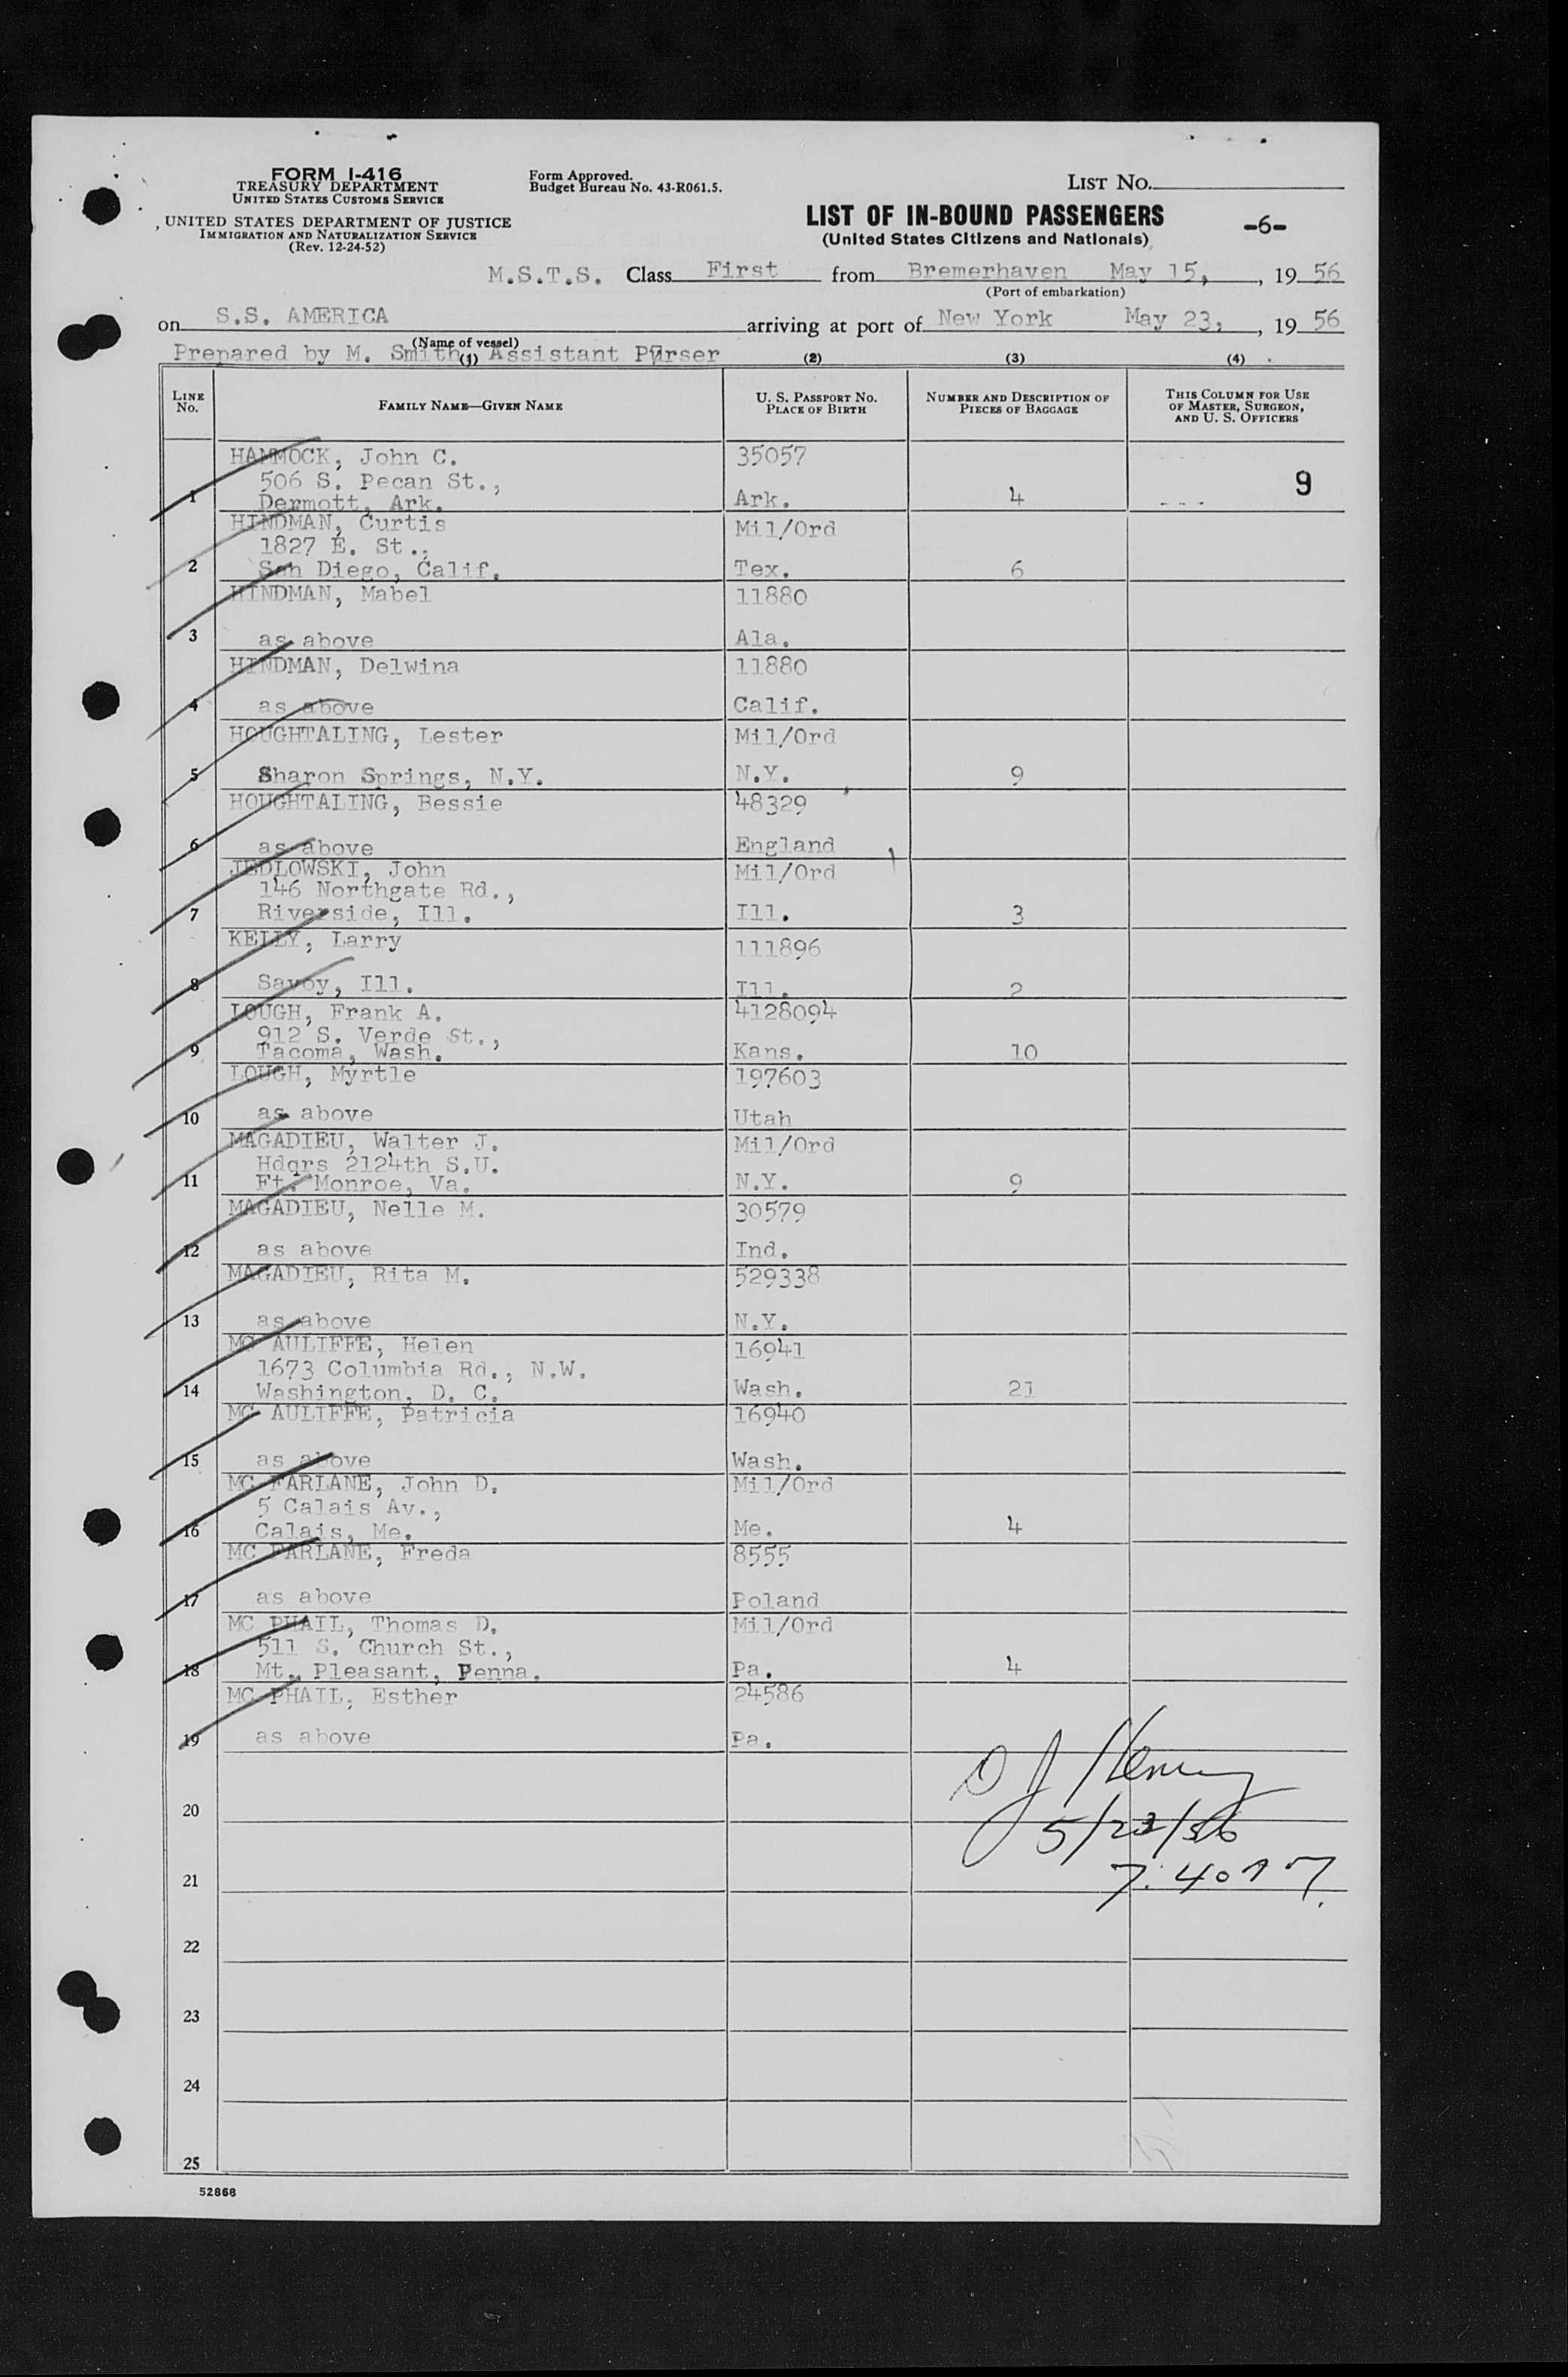 FORM I-416
TREASURY DEPARTMENT
UNITED STATES CUSTOMS SERVICE
UNITED STATES DEPARTMENT OF JUSTICE
IMMIGRATION AND NATURALIZATION SERVICE
(Rev. 12-24-52)
Form Approved.
Budget Bureau No. 43-R061.5.
LIST NO.
LIST OF IN-BOUND PASSENGERS
(United States Citizens and Nationals)
-6-
M.S.T.S. Class First from Bremerhaven May 15, , 19 56
(Port of embarkation)
on S.S. AMERICA arriving at port of New York May 23, , 19 56
(Name of vessel)
Prepared by M. Smith, Assistant Purser
(1) (2) (3) (4)
LINE No. FAMILY NAME—GIVEN NAME U. S. PASSPORT NO. PLACE OF BIRTH NUMBER AND DESCRIPTION OF PIECES OF BAGGAGE THIS COLUMN FOR USE OF MASTER, SURGEON, AND U. S. OFFICERS
HAMMOCK, John C. 35057
506 S. Pecan St., 9
1 Dermott, Ark. Ark. 4
HINDMAN, Curtis Mil/Ord
1827 E. St.,
2 San Diego, Calif. Tex. 6
HINDMAN, Mabel 11880
3 as above Ala.
HINDMAN, Delwina 11880
4 as above Calif.
HOUGHTALING, Lester Mil/Ord
5 Sharon Springs, N.Y. N.Y. 9
HOUGHTALING, Bessie 48329
6 as above England
JEDLOWSKI, John Mil/Ord
146 Northgate Rd.,
7 Riverside, Ill. Ill. 3
KELLY, Larry 111896
8 Savoy, Ill. Ill. 2
LOUGH, Frank A. 4128094
912 S. Verde St.,
9 Tacoma, Wash. Kans. 10
LOUGH, Myrtle 197603
10 as above Utah
MAGADIEU, Walter J. Mil/Ord
Hdqrs 2124th S.U.
11 Ft. Monroe, Va. N.Y. 9
MAGADIEU, Nelle M. 30579
12 as above Ind.
MAGADIEU, Rita M. 529338
13 as above N.Y.
MC AULIFFE, Helen 16941
1673 Columbia Rd., N.W.
14 Washington, D. C. Wash. 21
MC AULIFFE, Patricia 16940
15 as above Wash.
MC FARLANE, John D. Mil/Ord
5 Calais Av.,
16 Calais, Me. Me. 4
MC FARLANE, Freda 8555
17 as above Poland
MC PHAIL, Thomas D. Mil/Ord
511 S. Church St.,
18 Mt. Pleasant, Penna. Pa. 4
MC PHAIL, Esther 24586
19 as above Pa.
20
5/23/56
21
7:40
22
23
24
25
52868